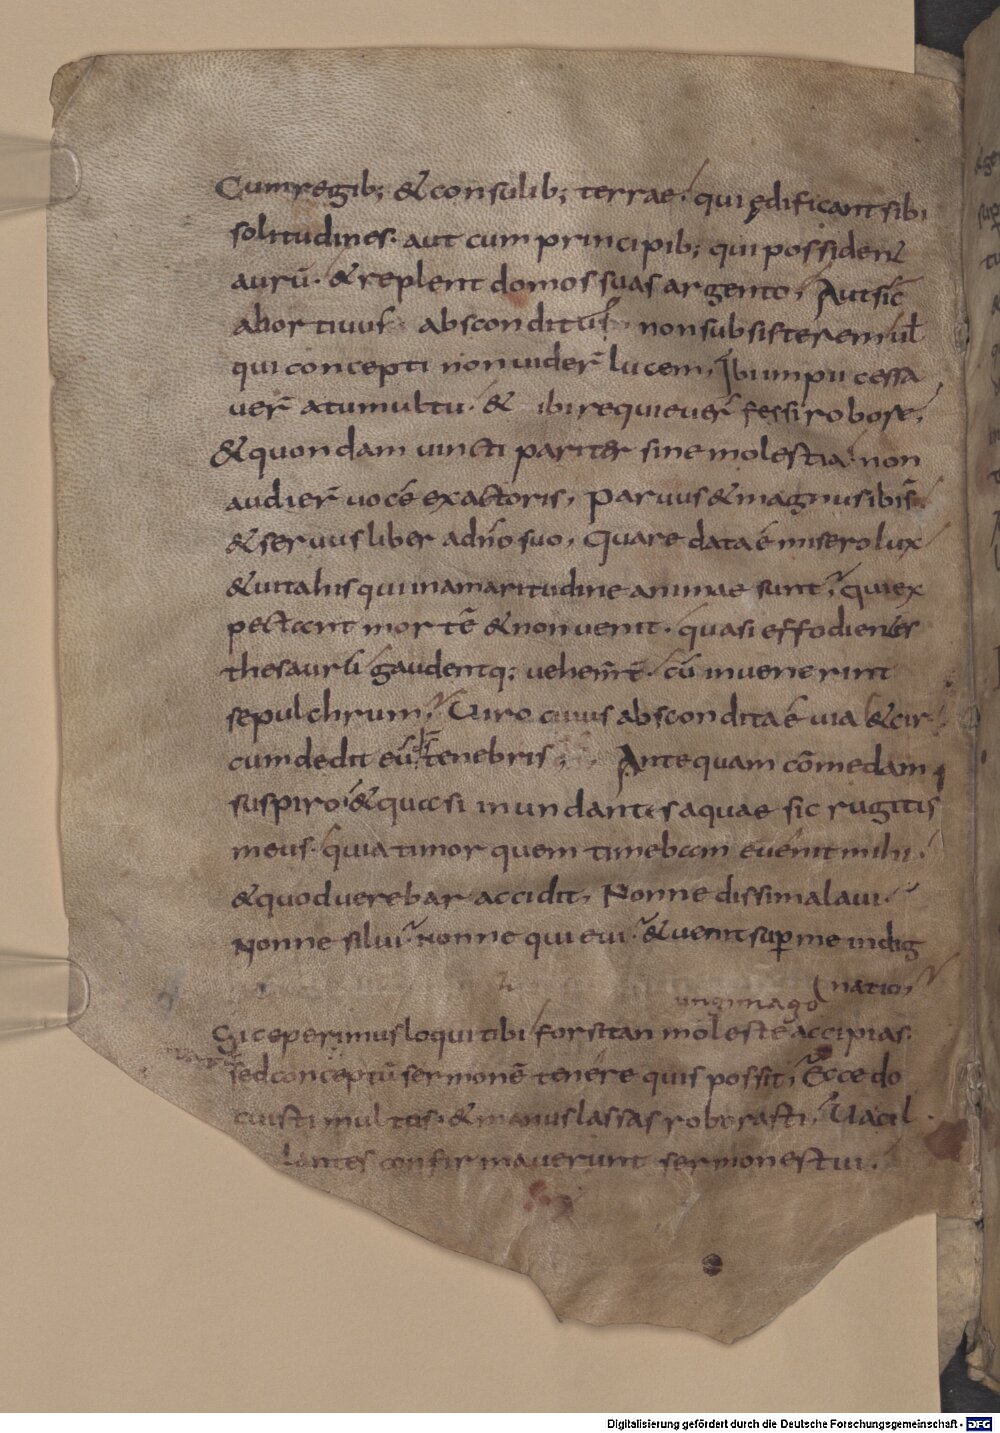 Cum regib; & consulib; terrae. qui ędificant sibi
solitudines. aut cum principib; qui possident
aurū. & replent domos suas argento, Aut sic̄
abortivus absconditus non subsisterem ul̄
qui concepti non uider̄ lucem, Ibi impii cessa
uer̄ a tumultu. & ibi requieuer̄ fessi robore,
& quondam uincti pariter sine molestia. non
audier̄ uocē exactoris, parvus & magnus ibi s̄
& servus liber a dn̄o suo, Quare data ē misero lux
& uita his qui in amaritudine animae sunt, qui ex
pectant mortē & non uenit. quasi effodientes
thesaurū gaudentq; uehem̄t. cū invenerint
sepulchrum, Uiro cuius abscondita ē uia & cir
cumdedit eū tenebris, Ante quam cōmedam
suspiro. & quasi inundantes aquae sic rugitis
meus. quia timor quem timebam evenit mihi.
& quod verebar accidit, Nonne dissimalaui.
Nonne silui. Nonne quieui. & uenit super me indig
natio,
Si ceperimus loqui tibi forsitan moleste accipias.
sed conceptū sermonē tenere quis possit, Ecce do
cuisti multos. & manus lassas roborasti, Uacil
lantes confirmauerunt sermones tui.